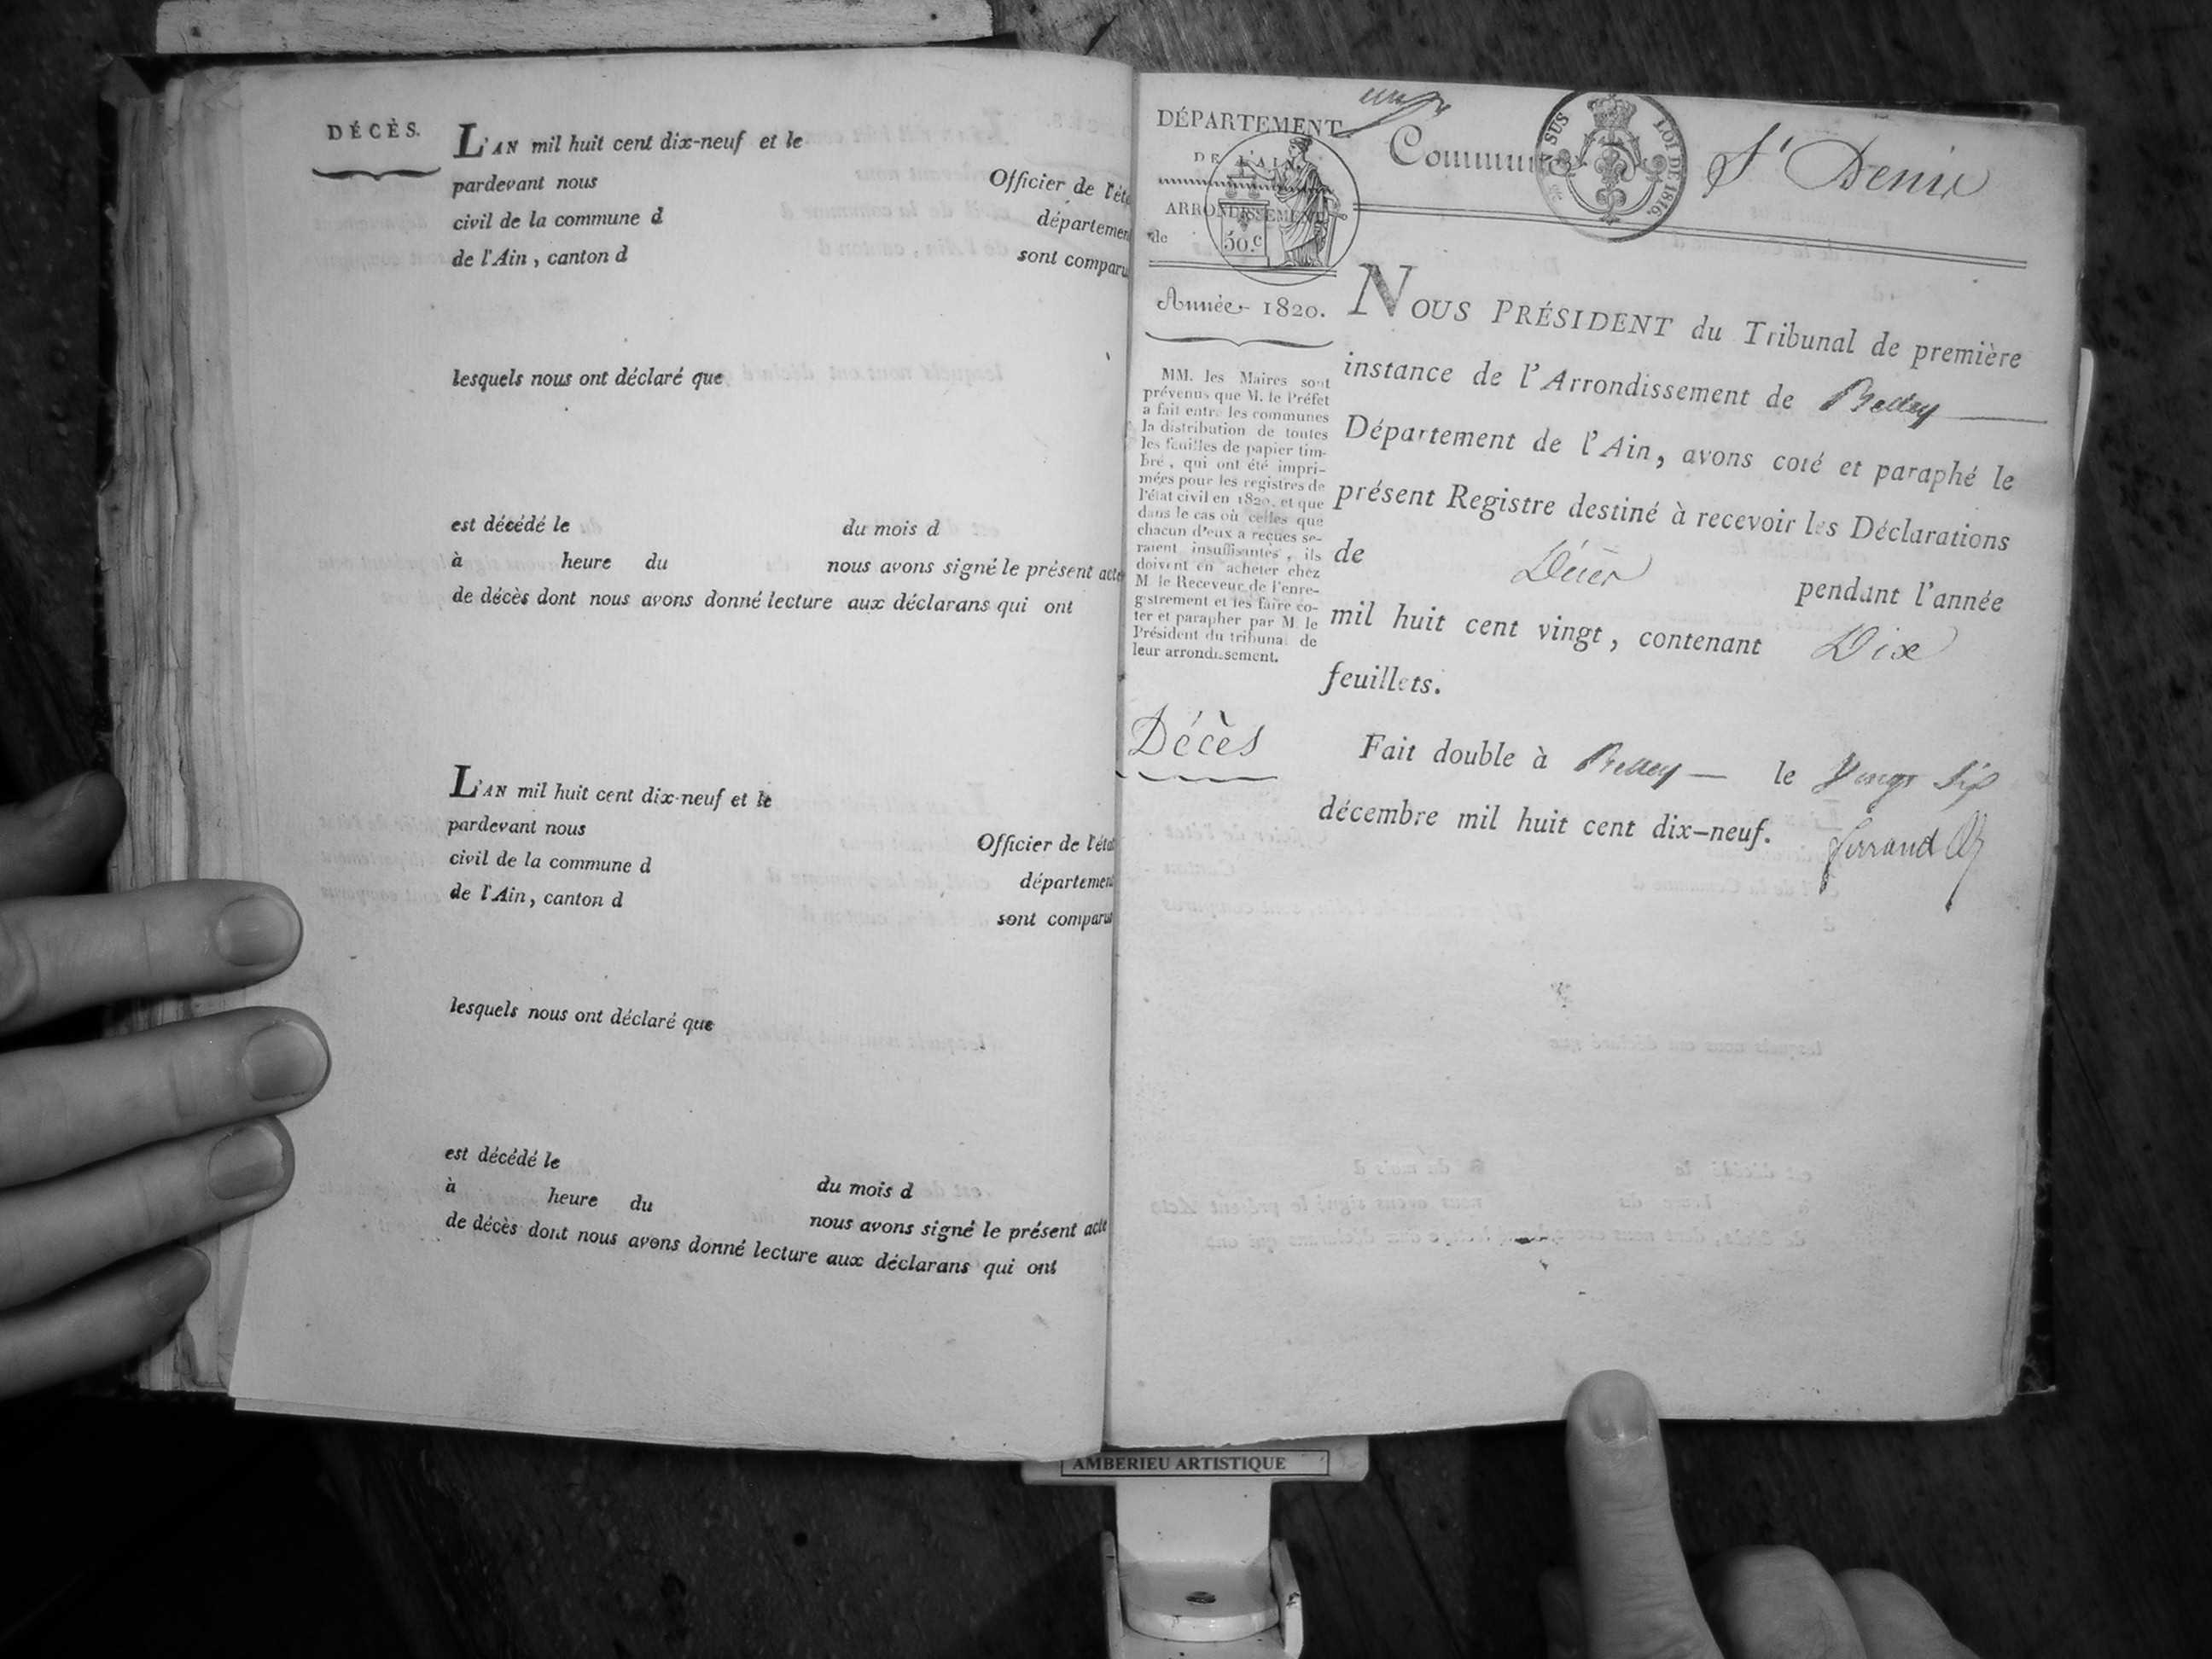 DÉCÈS.
L'AN mil huit cent dix-neuf et le
pardevant nous Officier de l'éta
civil de la commune d départemen
de l'Ain, canton d sont comparu
lesquels nous ont déclaré que
est décédé le du mois d
à heure du nous avons signé le présent acte
de décès dont nous avons donné lecture aux déclarans qui ont
L'AN mil huit cent dix-neuf et le
pardevant nous Officier de l'état
civil de la commune d département
de l'Ain, canton d sont comparus
lesquels nous ont déclaré que
est décédé le du mois d
à heure du nous avons signé le présent acte
de décès dont nous avons donné lecture aux déclarans qui ont
DÉPARTEMENT
DE L'AIN.
ARRONDISSEMENT
de
50.c
Année 1820.
Commune
SUS
LOI DE 1816.
St Denis
MM. les Maires sont
prévenus que M. le Préfet
a fait entre les communes
la distribution de toutes
les feuilles de papier tim-
bré, qui ont été impri-
mées pour les registres de
l'état civil en 1820, et que
dans le cas où celles que
chacun d'eux a reçues se-
raient insuffisantes, ils
doivent en acheter chez
M. le Receveur de l'enre-
gistrement et les faire co-
ter et parapher par M. le
Président du tribunal de
leur arrondissement.
Décès
NOUS PRÉSIDENT du Tribunal de première
instance de l'Arrondissement de Belley
Département de l'Ain, avons coté et paraphé le
présent Registre destiné à recevoir les Déclarations
de Décès pendant l'année
mil huit cent vingt, contenant Dix
feuillets.
Fait double à Belley le Vingt Six
décembre mil huit cent dix-neuf.
Ferrand
AMBERIEU ARTISTIQUE